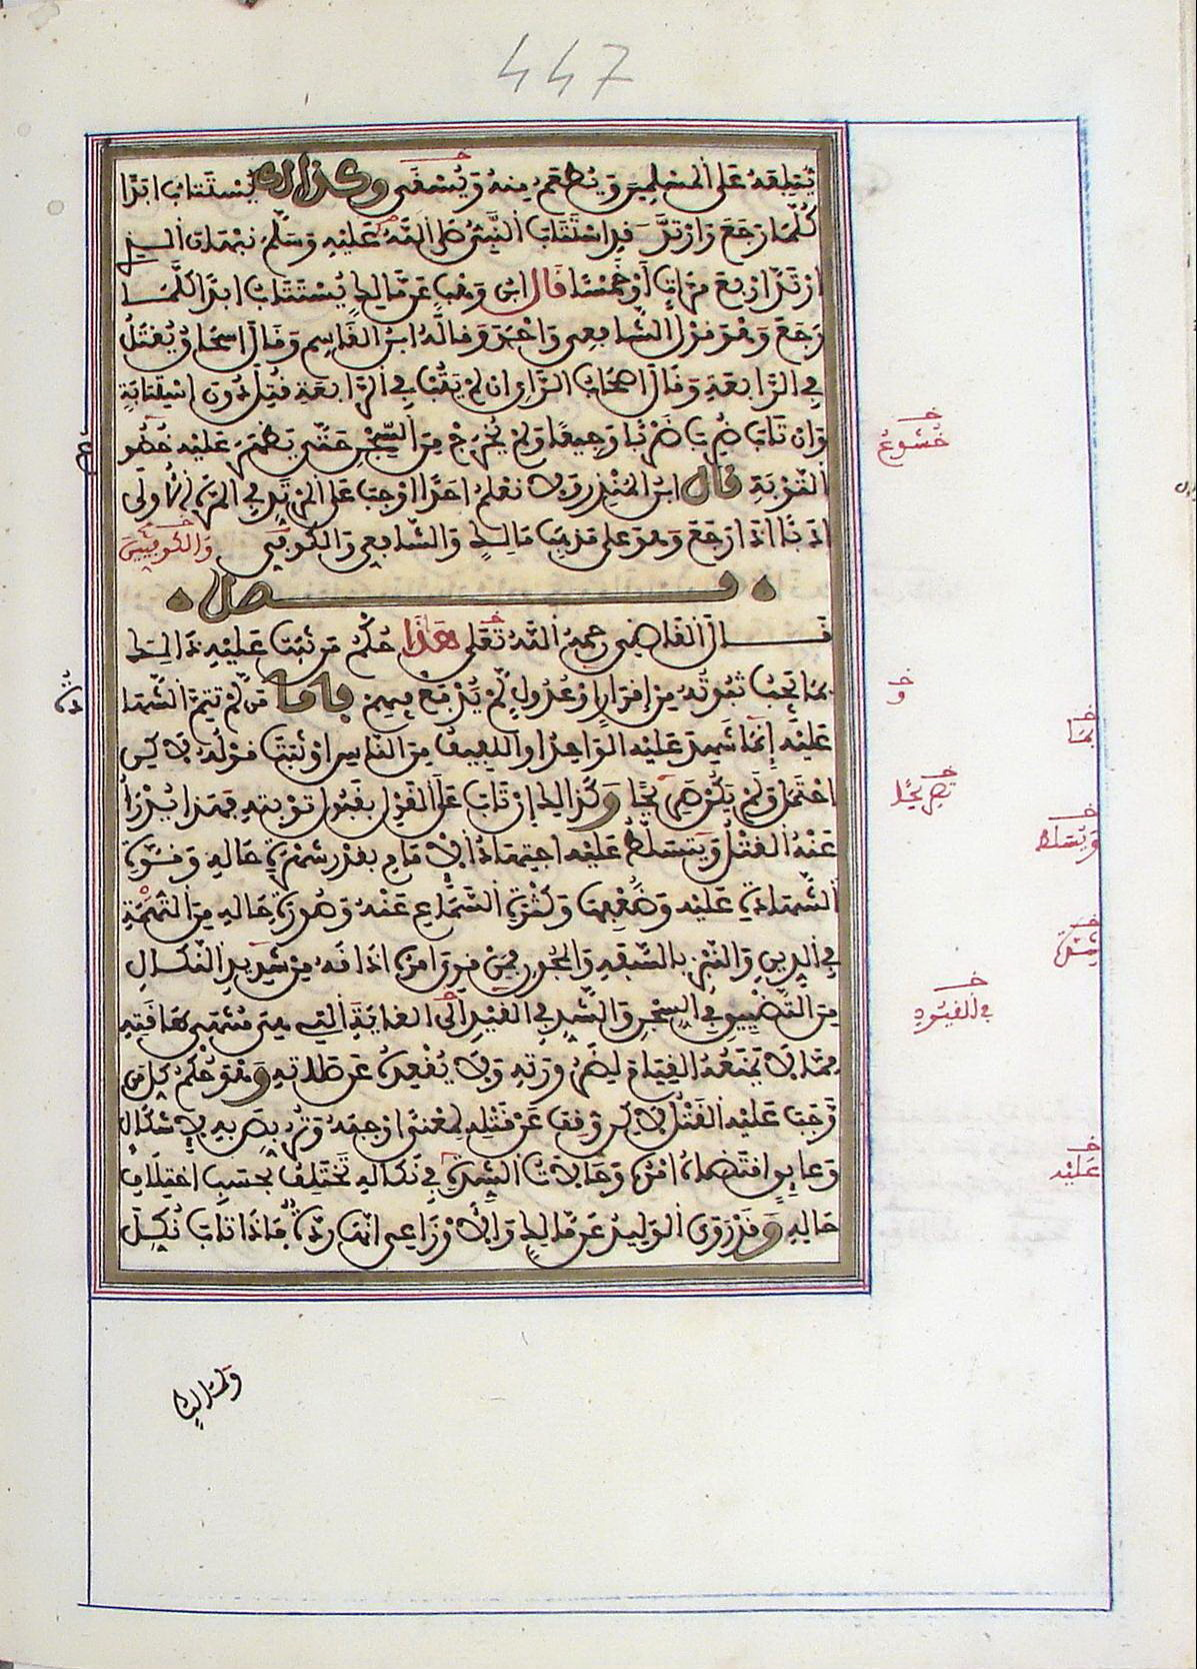 447
يُتْلِفَهُ عَلَى الْمُسْلِمِينَ وَيُطْعَمُ مِنْهُ وَيُسْقَى وكذالك يُسْتَتَابُ ابَدًا
كُلَّمَا رَجَعَ وَارْتَدَّ قد اسْتَتَابَ النَّبِيُّ صَلَّى اللَّهُ عَلَيْهِ وَسَلَّمَ نبهان الذي
ارْتَدَّ ارْبَعَ مَرَّاتٍ أَوْ خَمْسًا قَالَ ابن وَهْبٍ عَن مَّالِكٍ يُسْتَتَابُ ابَدًا كُلَّمَا
رَجَعَ وَهْوَ قَوْلُ الشَّافِعِي وَاحْمَدَ وَقَالَهُ ابنُ الْقَاسِمِ وَقَالَ اسْحَاقُ يُقْتَلُ
فِي الرَّابِعَةِ وَقَالَ اصْحَابُ الرَّاي ان لَمْ يَتُبْ فِي الرَّابِعَةِ قُتِلَ دُونَ اسْتِتَابَةٍ
وَان تَابَ ضُرِبَ ضَرْبًا وَجِيعًا وَلَمْ يُخْرَجْ مِنَ السِّجْنِ حَتَّى يَظْهَرَ عَلَيْهِ خُضُو ع
التَّوْبَةِ قال ابنُ الْمُنْذِرِ وَلَا نَعْلَمُ احَدًا اوْجَبَ عَلَى الْمُرْتَدِّ فِي الْمَرَّةِ الْأُولَى
ادَبًا اذَا رَجَعَ وَهْوَ عَلَى مَذْهَبِ مَالِكٍ وَالشَّافِعِي وَالْكُوفِي وَالْكُوفِيِّينَ
فصل
قَالَ الْقَاضِي رحمهُ اللَّهُ تَعَلَى هَذَا حُكْمُ مَن ثَبَتَ عَلَيْهِ ذَالِكَ
بِمَا يَجِبُ ثُبُوتُهُ مِنْ إِقْرَارٍ اوْ عُدُولٍ لَّمْ يُدْفَعْ فِيهِمْ فاما مَن لَّمْ تَتِمَّ الشَّهَا دَةُ
عَلَيْهِ إِنَّمَا شَهِدَ عَلَيْهِ الْوَاحِدُ او اللَّفِيفُ مِنَ النَّاسِ اوْ ثَبَتَ قَوْلُهُ لَاكِن
احْتَمَلَ وَلَمْ يَكُنْ صَرِيحًا وَكَذَالِكَ إِن تَابَ عَلَى الْقَوْلِ بِقَبُولِ تَوْبَتِهِ فَهَذَا يُدْرَأُ
عَنْهُ الْقَتْلُ وَيَتَسَلَّطُ عَلَيْهِ اجْتِهَادُ الْإِمَامِ بِقَدْرِ شُهْرَةِ حَالِهِ وَقُوَّةِ
الشَّهَادَةِ عَلَيْهِ وَضُعْفِهَا وَكَثْرَةِ السَّمَاعِ عَنْهُ وَصُورَةِ حَالِهِ مِنَ التُّهْمَةِ
فِي الدِّينِ وَالنَّبْزِ بِالسَّفَهِ وَالْمُجُونِ فَمَنْ قَوِيَ امْرُهُ اذَاقَهُ مِن شَدِيدِ النَّكَالِ
مِنَ التَّضْيِيقِ فِي السِّجْنِ وَالشَّدِّ فِي الْقَيْدِ الَى الْغَايَةِ الَّتِي هِيَ مُنْتَهَى طَاقَتِهِ
مِمَّا لَا يَمْنَعُهُ الْقِيَامَ لِضَرُورَتِهِ وَلَا يُقْعِدُهُ عَن صَلَاتِهِ وَهْوَ حُكْمُ كُلِّ مَن
وَجَبَ عَلَيْهِ الْقَتْلُ لَاكِن وُقِفَ عَن قَتْلِهِ لِمَعْنًى اوْجَبَهُ وَتُرُبِّصَ بِهِ لِإِشْكَالٍ
وَعَائِقٍ اقْتَضَاهُ امْرُهُ وَحَالَاتُ الشِّدَّةِ فِي نَكَالِهِ تَخْتَلِفُ بِحَسَبِ اخْتِلَافِ
حَالِهِ وَقَدْ رَوَى الْوَلِيدُ عَن مَّالِكٍ وَالْأَوْزَاعِي انَّهَا رِدَّةٌ فَاذَا تَابَ نُكِّلَ
خُشُوعُ
و
بِمَا
تَصْرِيحًا
وَيُسَلَّط
شِدَّة
فِي الْقُيُودِ
عَلَيْهِ
وَلِمَالِكٍ